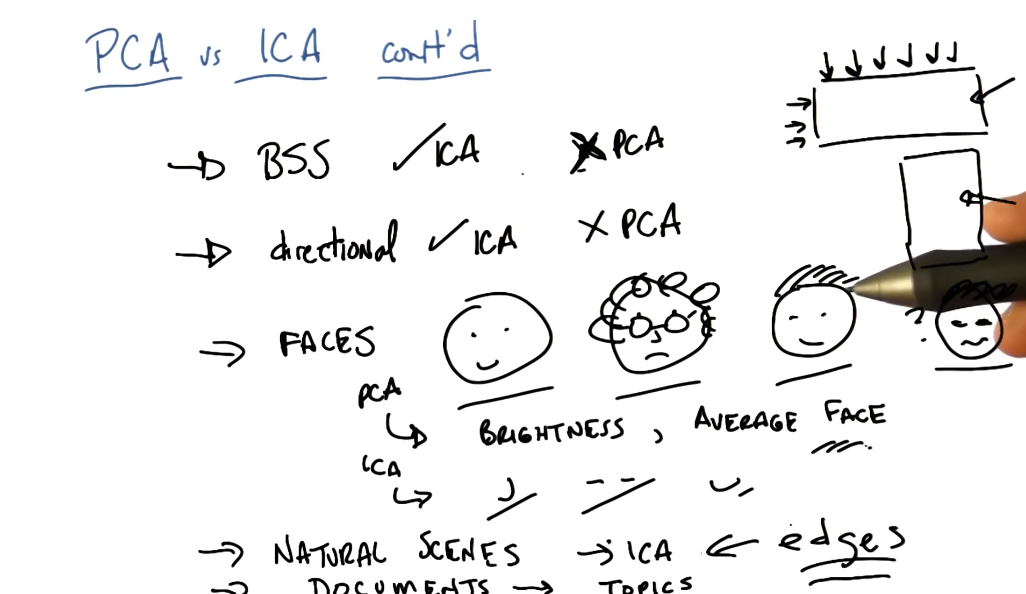 PCA vs ICA cont'd
→ BSS ✓ ICA ✗ PCA
→ directional ✓ ICA ✗ PCA
→ FACES
?
PCA
↳ BRIGHTNESS, AVERAGE FACE
ICA
↳
→ NATURAL SCENES → ICA ← edges
→ DOCUMENTS → TOPICS